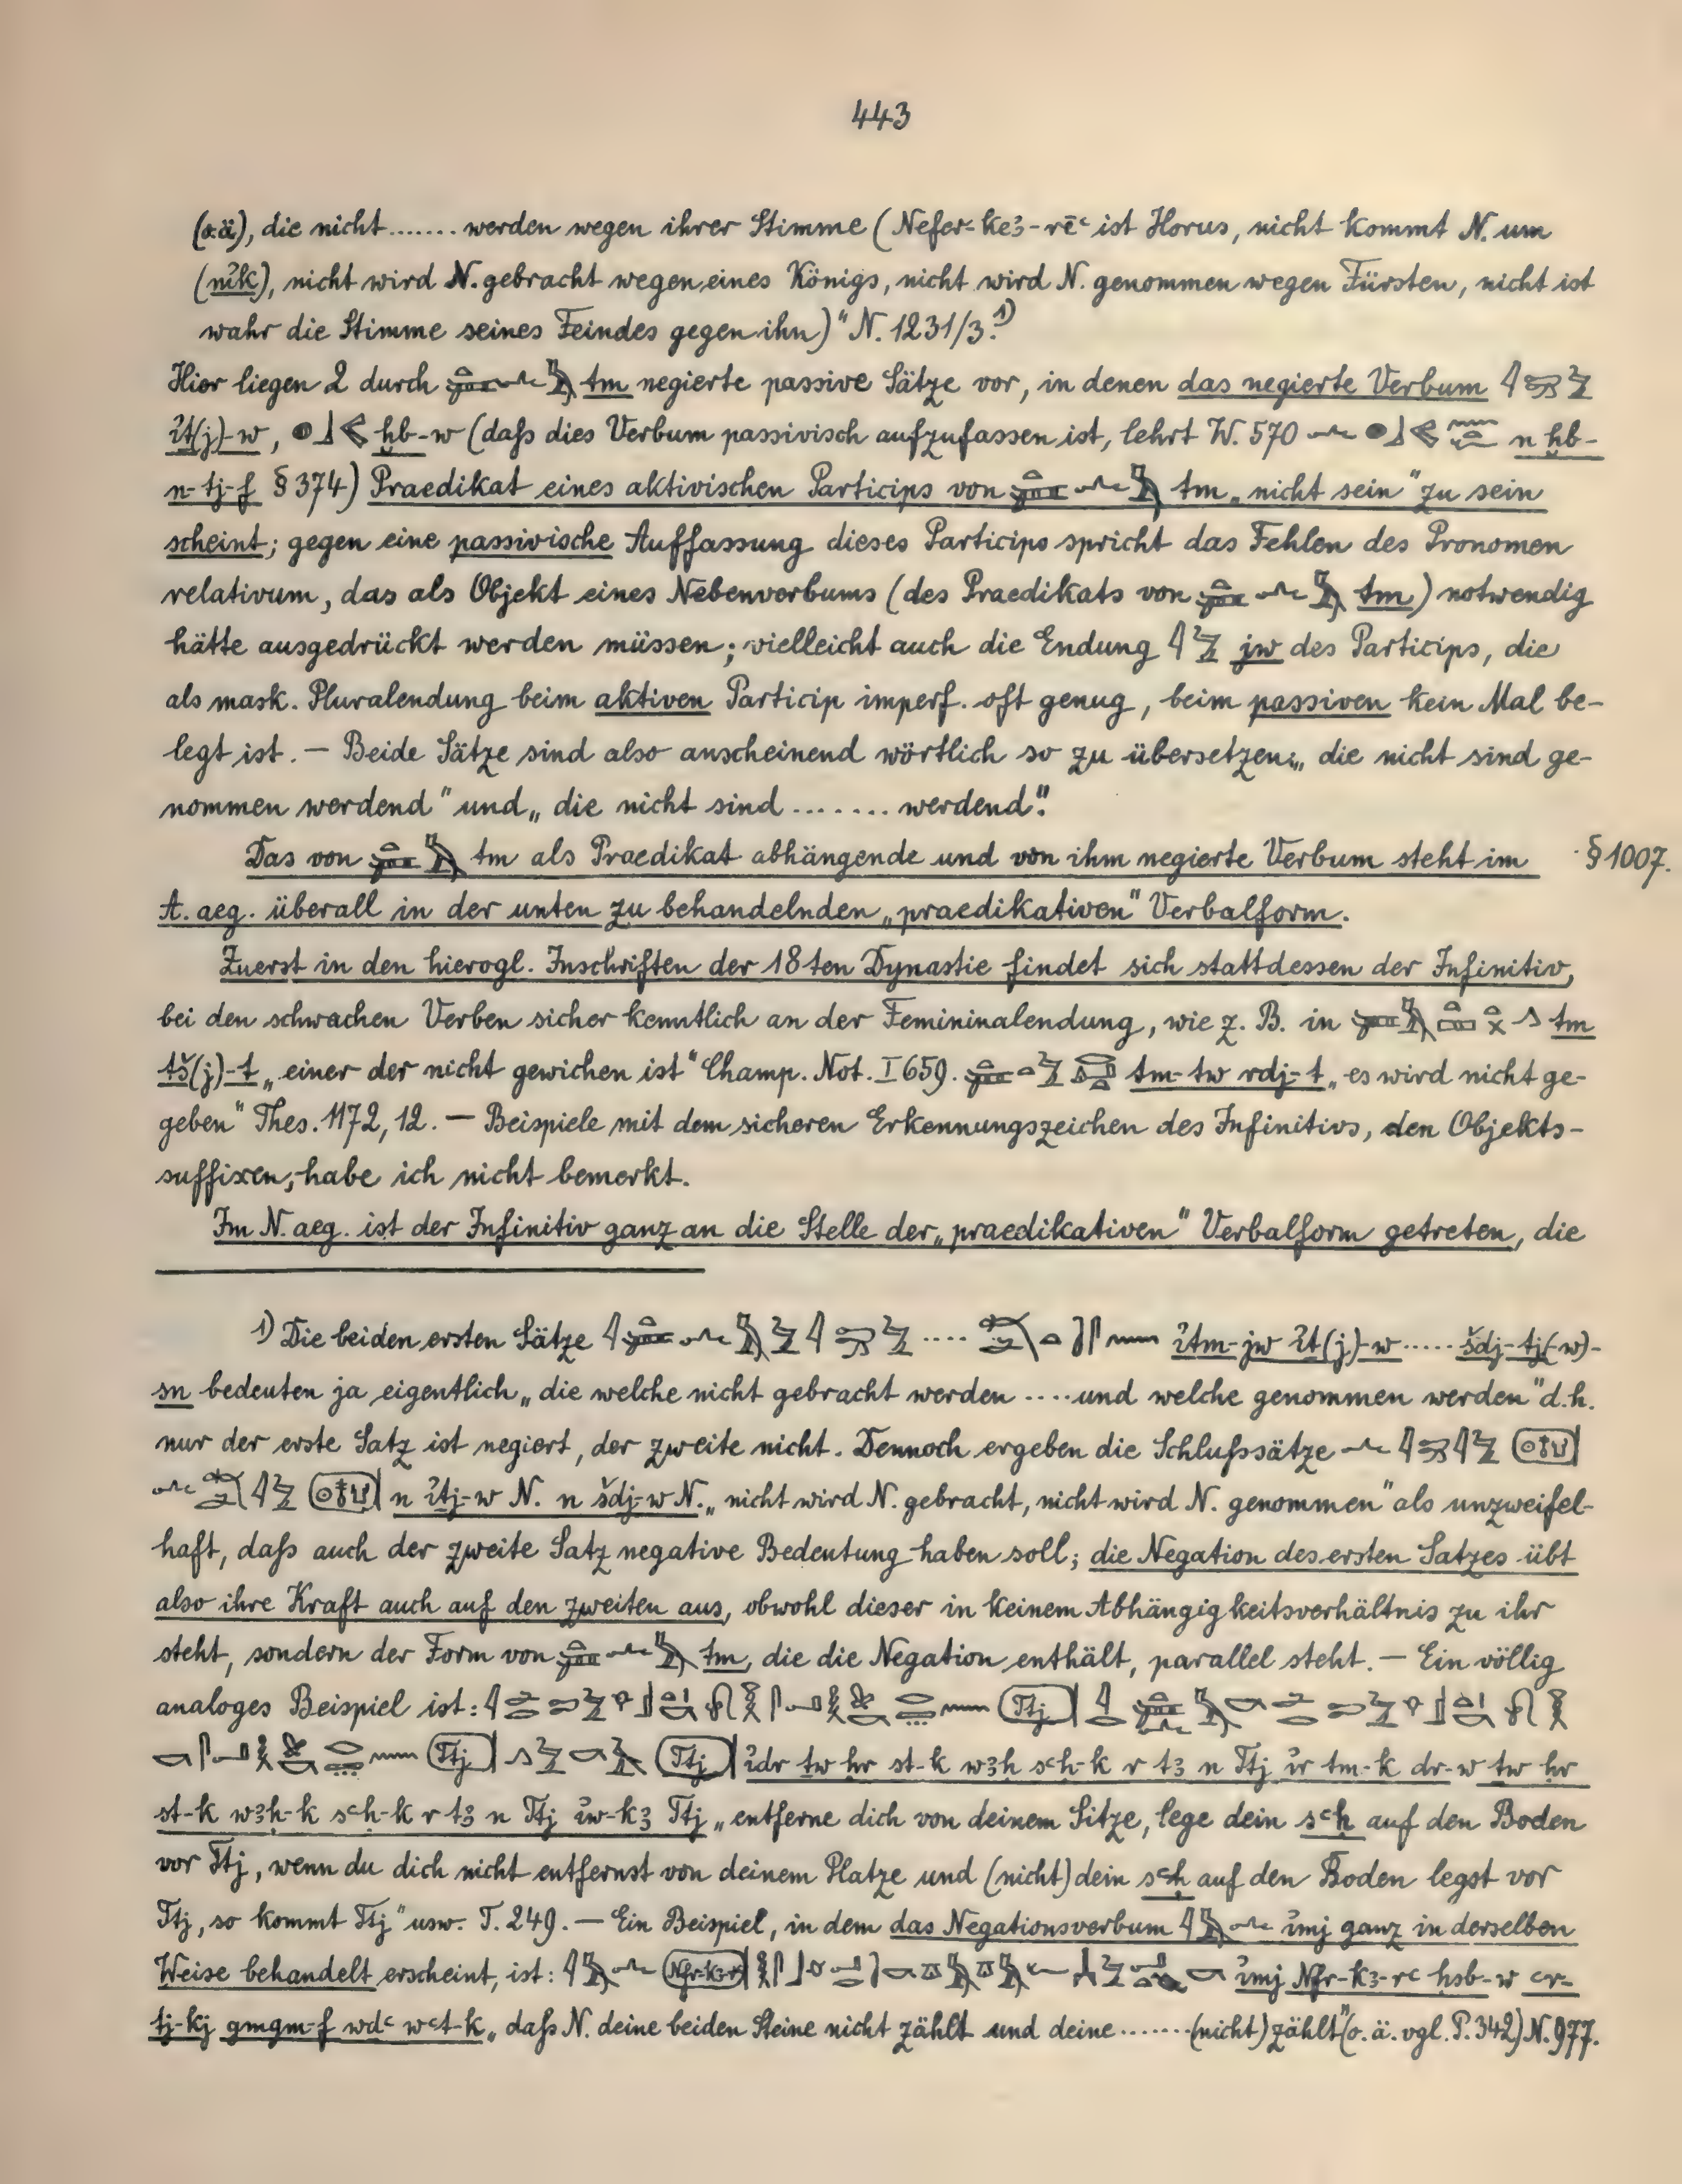 443
(o.ä), die nicht ....... werden wegen ihrer Stimme (Nefer-ke3-rēʿ ist Horus, nicht kommt N. um
(nỉk), nicht wird N. gebracht wegen eines Königs, nicht wird N. genommen wegen Fürsten, nicht ist
wahr die Stimme seines Feindes gegen ihn)" N. 1231/3.¹)
Hier liegen 2 durch tm negierte passive Sätze vor, in denen das negierte Verbum
ỉt(j)-w, ḫb-w (daſs dies Verbum passivisch aufzufassen ist, lehrt W. 570 n ḫb-
n-tj-f § 374) Praedikat eines aktivischen Particips von tm „nicht sein" zu sein
scheint; gegen eine passivische Auffassung dieses Particips spricht das Fehlen des Pronomen
relativum, das als Objekt eines Nebenverbums (des Praedikats von tm) notwendig
hätte ausgedrückt werden müssen; vielleicht auch die Endung jw des Particips, die
als mask. Pluralendung beim aktiven Particip imperf. oft genug, beim passiven kein Mal be-
legt ist. — Beide Sätze sind also anscheinend wörtlich so zu übersetzen: „die nicht sind ge-
nommen werdend" und „die nicht sind ........ werdend".
Das von tm als Praedikat abhängende und von ihm negierte Verbum steht im § 1007.
A. aeg. überall in der unten zu behandelnden „praedikativen" Verbalform.
Zuerst in den hierogl. Inschriften der 18ten Dynastie findet sich stattdessen der Infinitiv,
bei den schwachen Verben sicher kenntlich an der Femininalendung, wie z. B. in tm
tš(j)-t „einer der nicht gewichen ist" Champ. Not. I 659. tm-tw rdj-t „es wird nicht ge-
geben" Thes. 1172, 12. — Beispiele mit dem sicheren Erkennungszeichen des Infinitivs, den Objekts-
suffixen, habe ich nicht bemerkt.
Im N. aeg. ist der Infinitiv ganz an die Stelle der „praedikativen" Verbalform getreten, die
1) Die beiden ersten Sätze .... ỉtm-jw ỉt(j)-w ...... šdj-tj(-w)-
sn bedeuten ja eigentlich „die welche nicht gebracht werden .... und welche genommen werden" d. h.
nur der erste Satz ist negiert, der zweite nicht. Dennoch ergeben die Schluſssätze
n ỉtj-w N. n šdj-w N. „nicht wird N. gebracht, nicht wird N. genommen" als unzweifel-
haft, daſs auch der zweite Satz negative Bedeutung haben soll; die Negation des ersten Satzes übt
also ihre Kraft auch auf den zweiten aus, obwohl dieser in keinem Abhängigkeitsverhältnis zu ihr
steht, sondern der Form von tm, die die Negation enthält, parallel steht. — Ein völlig
analoges Beispiel ist:
ỉdr tw ḥr st-k w3ḥ sʿḥ-k r t3 n Ttj ỉr tm-k dr-w tw ḥr
st-k w3ḥ-k sʿḥ-k r t3 n Ttj ỉw-k3 Ttj „entferne dich von deinem Sitze, lege dein sʿḥ auf den Boden
vor Ttj, wenn du dich nicht entfernst von deinem Platze und (nicht) dein sʿḥ auf den Boden legst vor
Ttj, so kommt Ttj" usw. T. 249. — Ein Beispiel, in dem das Negationsverbum ỉmj ganz in derselben
Weise behandelt erscheint, ist: ỉmj Nfr-k3-rʿ ḥsb-w ʿr-
tj-kj gmgm-f wdʿ wʿt-k „daſs N. deine beiden Steine nicht zählt und deine ....... (nicht) zählt" (o. ä. vgl. P. 342) N. 977.